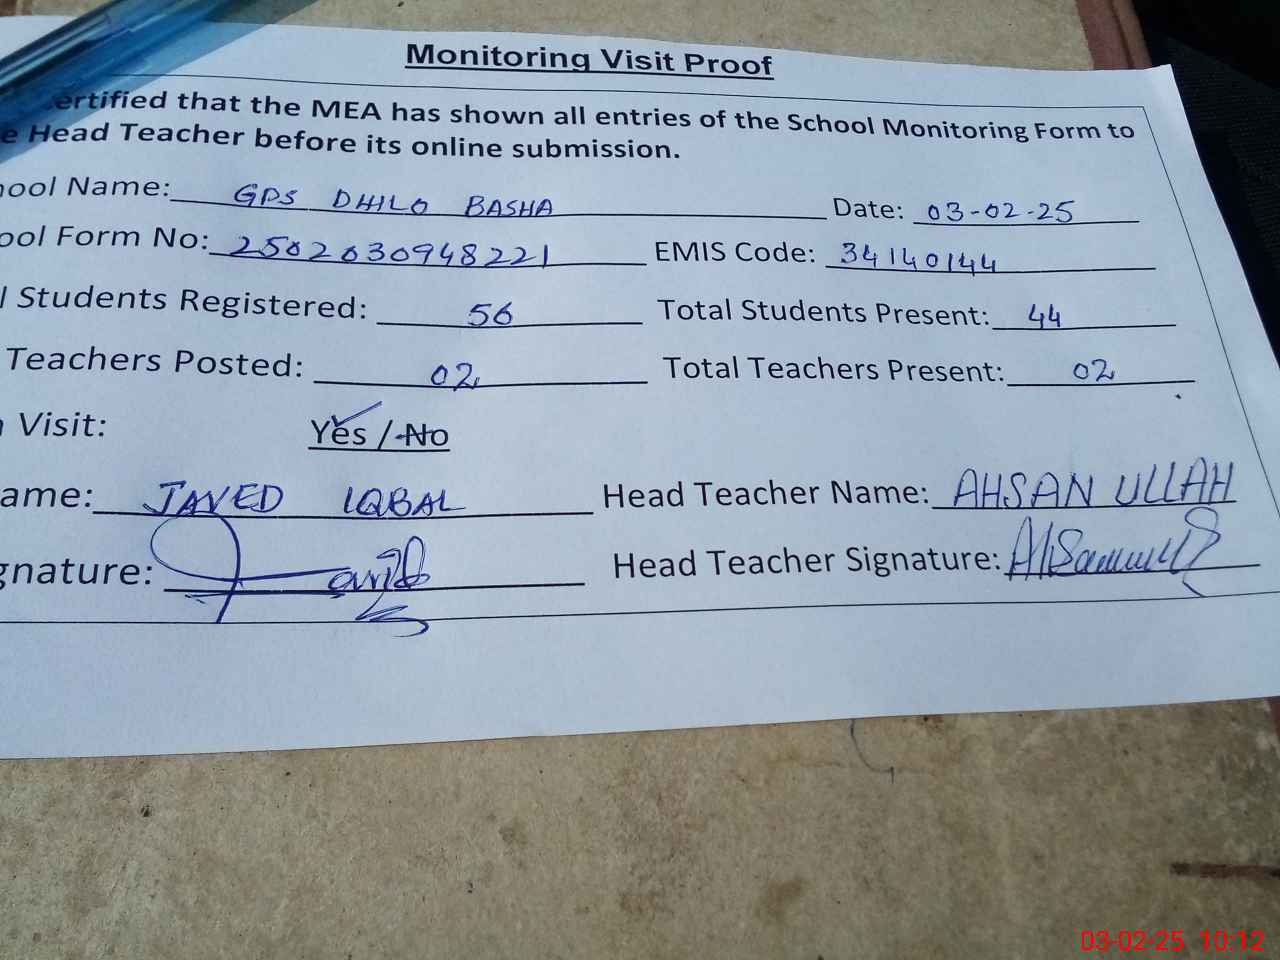 Monitoring Visit Proof
ertified that the MEA has shown all entries of the School Monitoring Form to
e Head Teacher before its online submission.
hool Name: GPS DHILO BASHA Date: 03-02-25
ool Form No: 2502030948221 EMIS Code: 34140144
l Students Registered: 56 Total Students Present: 44
Teachers Posted: 02 Total Teachers Present: 02
Visit: Yes / No
ame: JAVED IQBAL Head Teacher Name: AHSAN ULLAH
gnature: Head Teacher Signature:
03-02-25 10:12